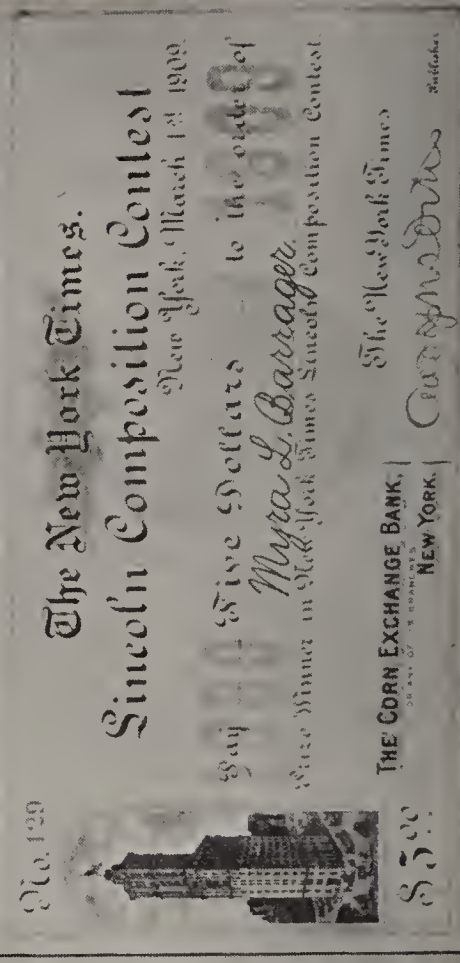 No. 199
The New York Times.
Lincoln Composition Contest
New York, March 1st 1909.
Pay Five Dollars to the order of
Myra L. Barrager.
Prize Winner in New York Times Lincoln Composition Contest.
The New York Times
THE CORN EXCHANGE BANK,
OR ANY OF ITS BRANCHES
NEW YORK.
Publisher
$5.00